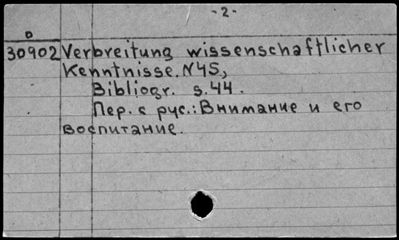 -2-
30902 Verbreitung wissenschaftlicher
Kenntnisse. N45,
Bibliogr. s.44.
Пер. с рус.: Внимание и его
воспитание.